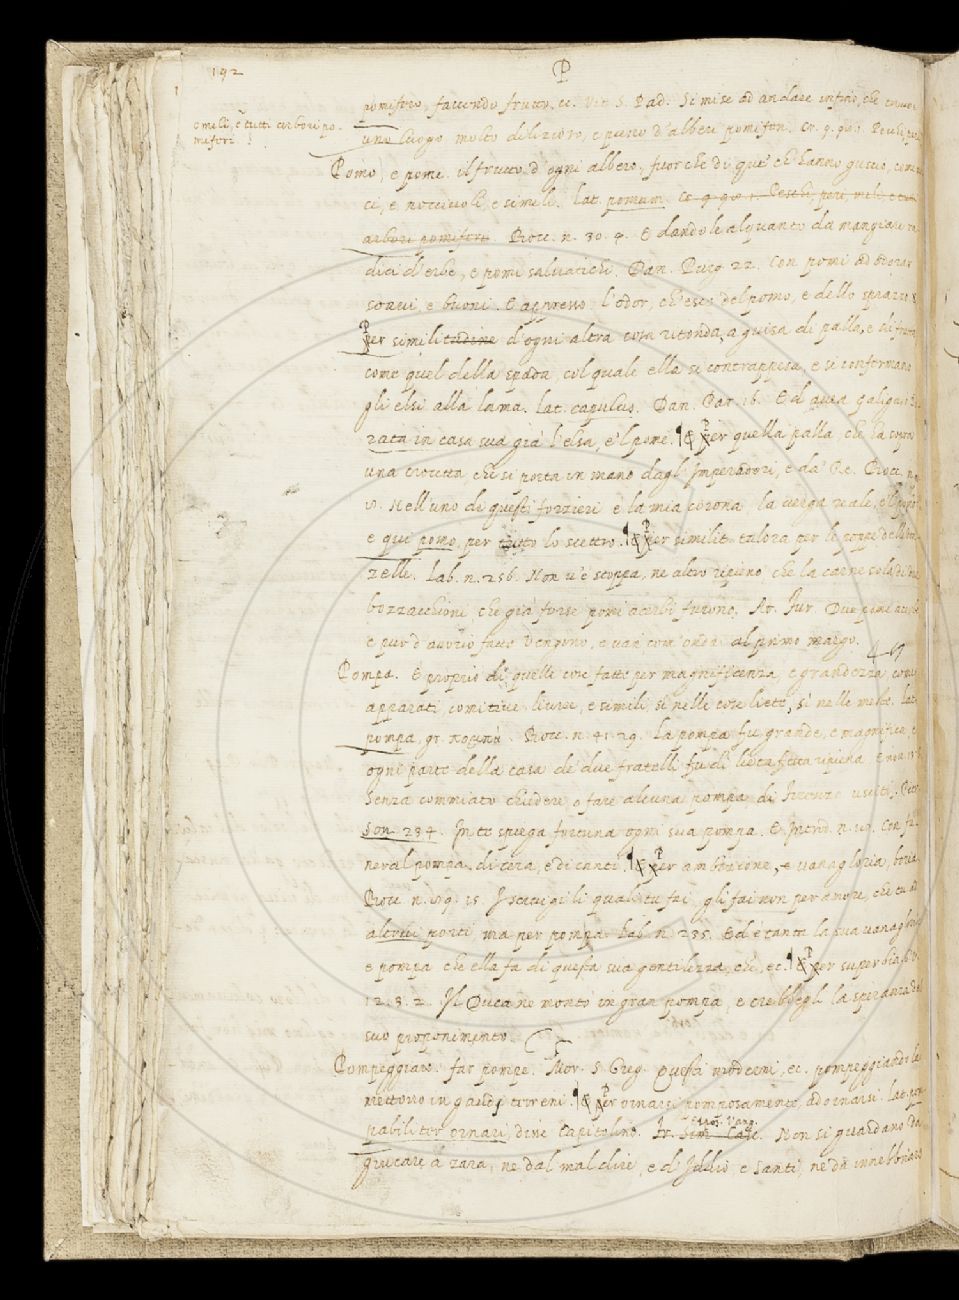 192
P
o meli, e tutti arbori po-
miferi
pomifero, facendo frutto. ec. Vit. S. Pad. Si mise ad andare infino, che
uno luogo molto dilizioso, e pieno d'alberi pomiferi. Cr. 9. 90. 1. Peschi, peri
Pomo, e pome. il frutto d'ogni albero, fuorche di que' ch'hanno guscio, come
ci, e nocciuoli, e simili. Lat. pomum. Cr. 9. 90. 1. Peschi, peri, meli, e tutti
arbori pomiferi. Bocc. n. 30. 4. E dandole alquanto da mangiare ra
dici d'erbe, e pomi salvatichi. Dan. Purg. 22. Con pomi ad odorar
soavi, e buoni. E appresso: l'odor, ch'esce del pomo, e dello sprazzo
Per similitudine d'ogni altra cosa ritonda, a guisa di palla, e di frutto
come quel della spada, col quale ella si contrappesa, e si confermano
gli elsi alla lama. Lat. capulus. Dan. Par. 16. Ed avea Galigaio
rata in casa sua già l'elsa, e'l pome. ¶ Per quella palla che ha sopra
una crocetta, che si porta in mano dagl'Imperadori, e da' Re. Bocc. n.
Nell'uno di questi forzieri è la mia corona, la verga reale, e'l pomo
e qui pomo, per tutto lo scettro. ¶ Per similit. talora per le poppe delle
zelle. Lab. n. 256. Non v'è stoppa, ne altro ripieno, che la carne sola di due
bozzacchioni, che già forse pomi acerbi furono. Ar. Fur. Due pome acerbe
e pur d'avorio fatte vengono, e van com'onda al primo margo.
Pompa. È proprio di quelle cose fatte per magnificenza, e grandezza come
apparati, comitive, livree, e simili, sì nelle cose liete, sì nelle meste. Lat.
pompa, gr. πομπή. Bocc. n. 41. 29. La pompa fu grande, e magnifica, e
ogni parte della casa de' due fratelli fu di lieta festa ripiena. E
Senza commiato chiedere, o fare alcuna pompa di Firenze usciti. Petr.
Son. 284. In te spiega fortuna ogni sua pompa. E Introd. n. Con fu
neral pompa di cera, e di canti. ¶ Per ambizione, e vanagloria, boria
Bocc. n. 15. I servigi li quali tu fai, gli fai non per amore, che tu ad
altrui porti, ma per pompa. Lab. n. 235. Ed è tanta la sua vanagloria
e pompa che ella fa di questa sua gentilezza, che, ec. ¶ Per superbia
12. 8. 2. Il Duca ne montò in gran pompa, e crebbegli la speranza del
suo proponimento.
Pompeggiare. far pompe. Mor. S. Greg. Questi mondani, ec. pompeggiando
mettono in gaudj terreni. ¶ Per ornarsi pomposamente, adornarsi. Lat. pom
pabiliter ornari, disse Capitolino. Non si guardano da
giucare a zara, ne dal mal dire, e d'Iddio e Santi, ne da innebbriarsi